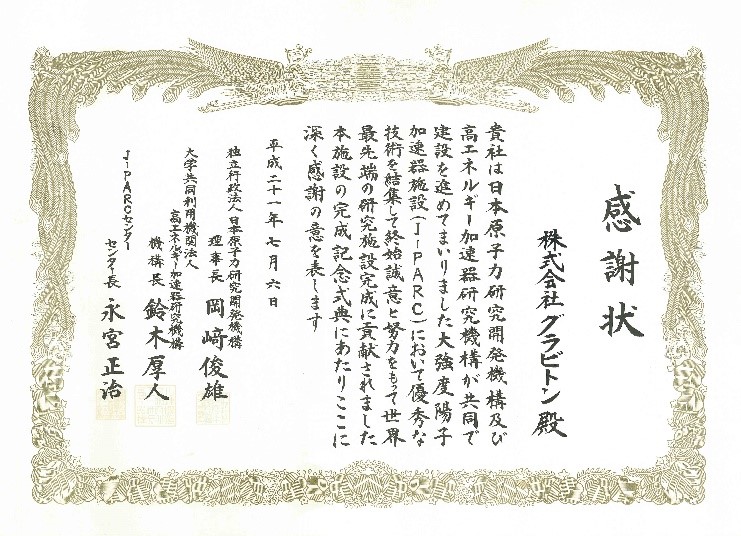 感謝状
株式会社グラビトン殿
貴社は日本原子力研究開発機構及び
高エネルギー加速器研究機構が共同で
建設を進めてまいりました大強度陽子
加速器施設(J-PARC)において優秀な
技術を結集して終始誠意と努力をもって世界
最先端の研究施設完成に貢献されました
本施設の完成記念式典にあたりここに
深く感謝の意を表します
平成二十一年七月六日
独立行政法人日本原子力研究開発機構
理事長 岡﨑俊雄
大学共同利用機関法人
高エネルギー加速器研究機構
機構長 鈴木厚人
J-PARCセンター
センター長 永宮正治